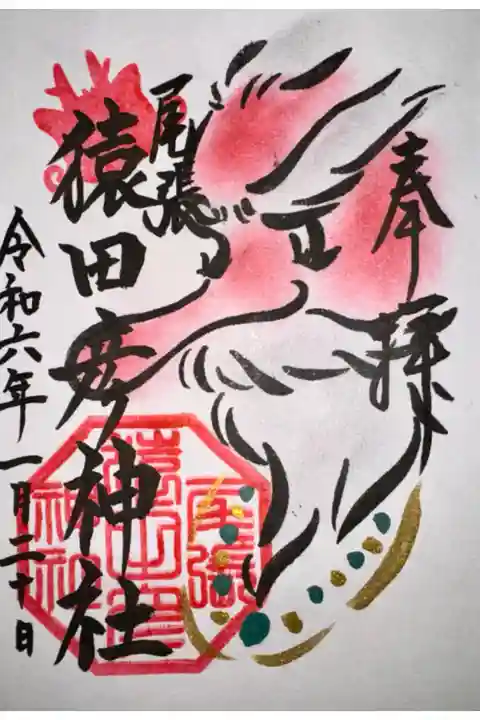 奉拝
正
尾張
猿田彦神社
令和六年一月二十日